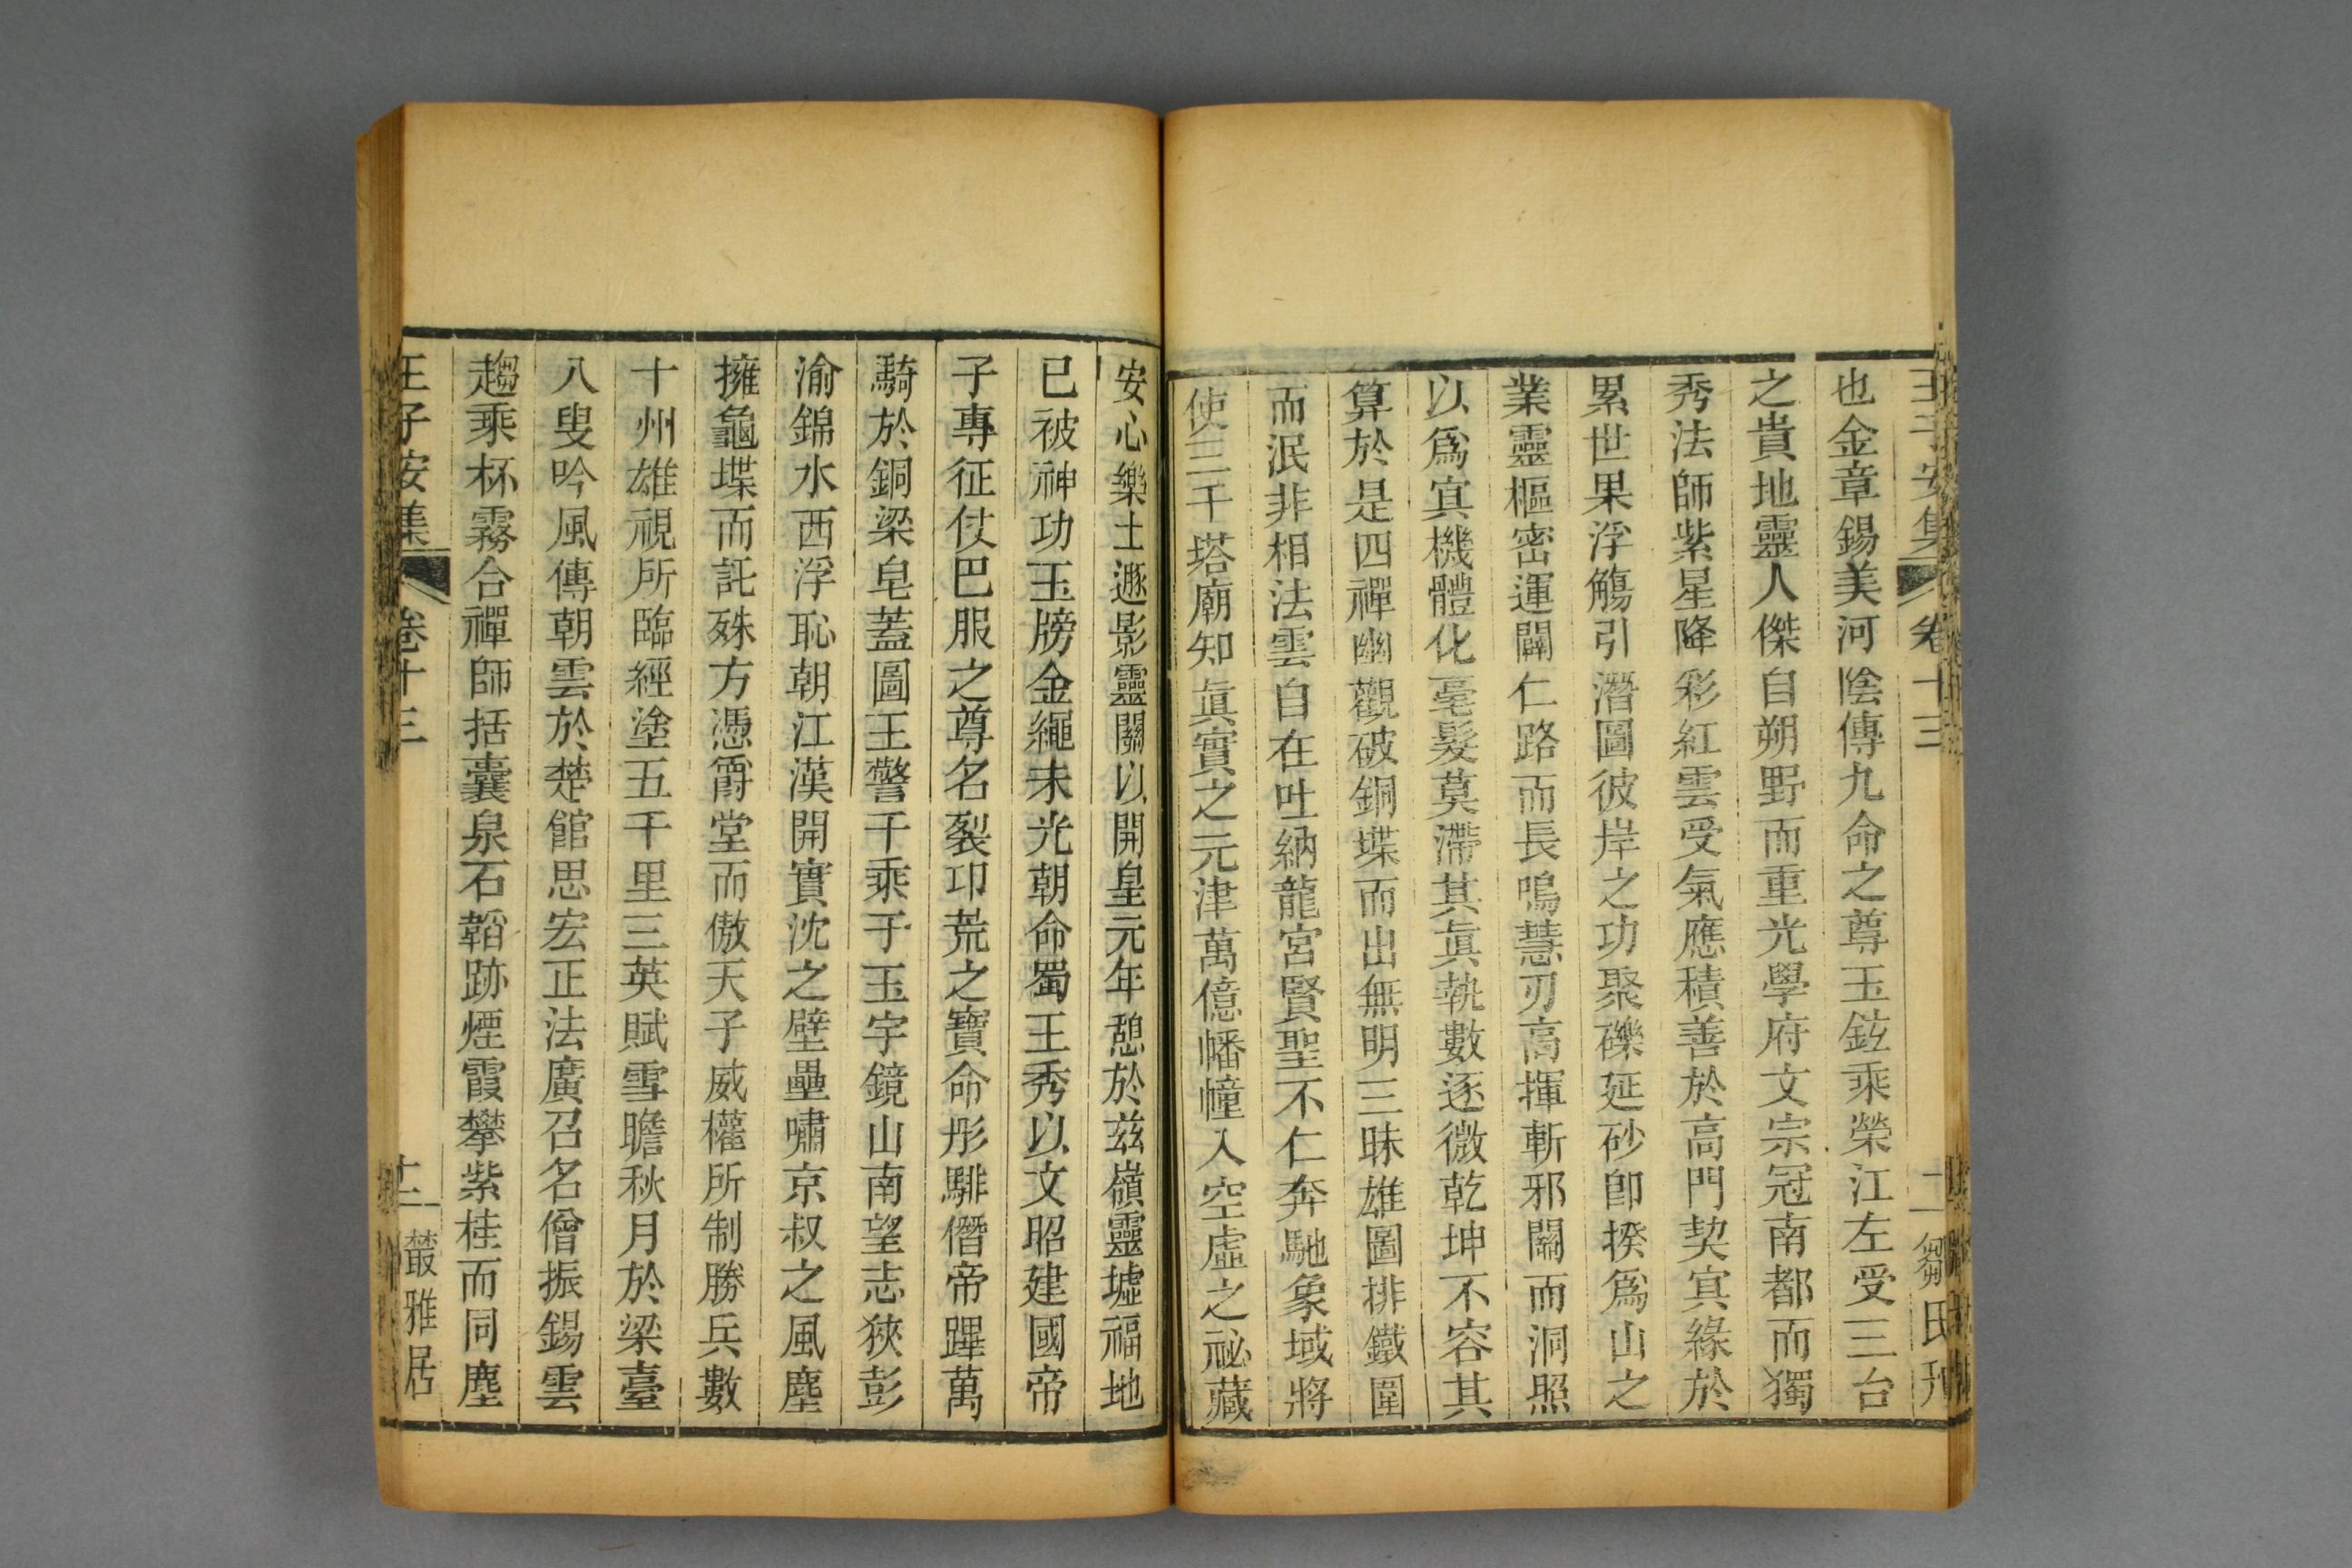 王子安集 卷十三 二 鄒氏刋
也金章錫美河陰傳九命之尊玉鉉乘榮江左受三台
之貴地靈人傑自朔野而重光學府文宗冠南都而獨
秀法師紫星降彩紅雲受氣應積善於高門契冥緣於
累世果浮觴引潛圖彼岸之功聚礫延砂卽揆爲山之
業靈樞密運闢仁路而長鳴慧刃高揮斬邪關而洞照
以爲冥機體化毫髮莫滯其眞執數逐微乾坤不容其
算於是四禪幽觀破銅堞而出無明三昧雄圖排鐵圍
而泯非相法雲自在吐納龍宮賢聖不仁奔馳象域將
使三千塔廟知眞實之元津萬億幡幢入空虛之祕藏
安心樂土遯影靈關以開皇元年憩於茲嶺靈墟福地
已被神功玉牓金繩未光朝命蜀王秀以文昭建國帝
子專征仗巴服之尊名裂卭荒之寶命彤騑僭帝蹕萬
騎於銅梁皂蓋圖王警千乘于玉宇鏡山南望志狹彭
渝錦水西浮恥朝江漢開實沈之壁壘嘯京叔之風塵
擁龜堞而託殊方憑爵堂而傲天子威權所制勝兵數
十州雄視所臨經塗五千里三英賦雪瞻秋月於梁臺
八叟吟風傳朝雲於楚館思宏正法廣召名僧振錫雲
趨乘杯霧合禪師括囊泉石韜跡煙霞攀紫桂而同塵
王子安集 卷十三 二 叢雅居